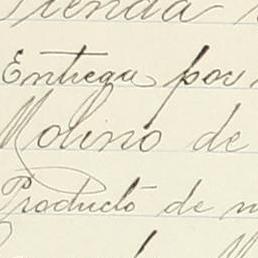 Tienda
Entrega por
Molino de
Producto de